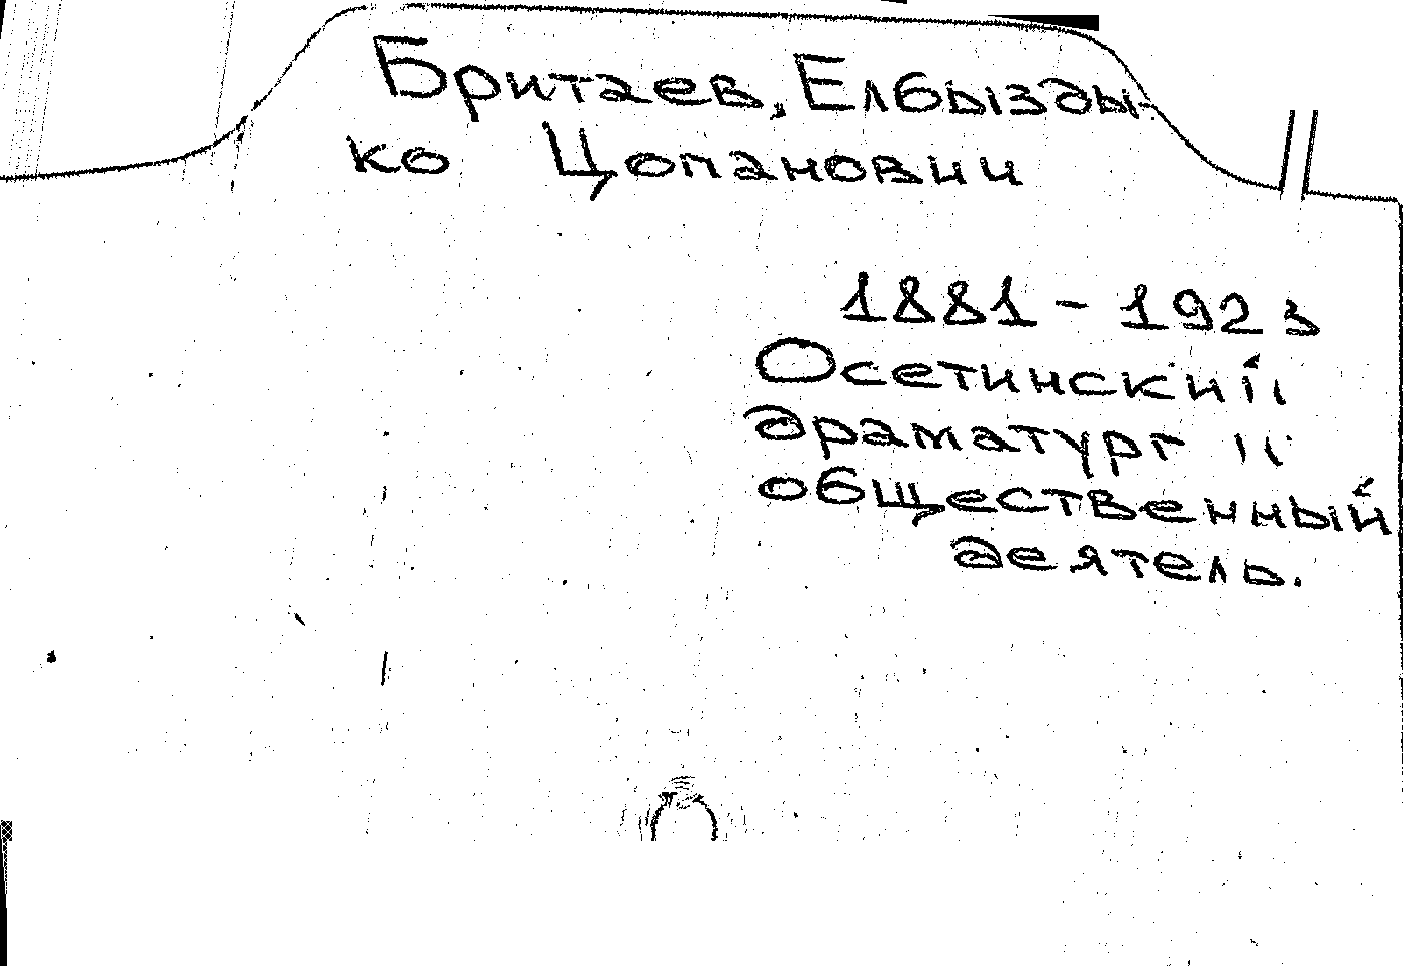 Бритаев, Елбызды-
ко Цопанович
1881 - 1923
Осетинский
драматург и
общественный
деятель.